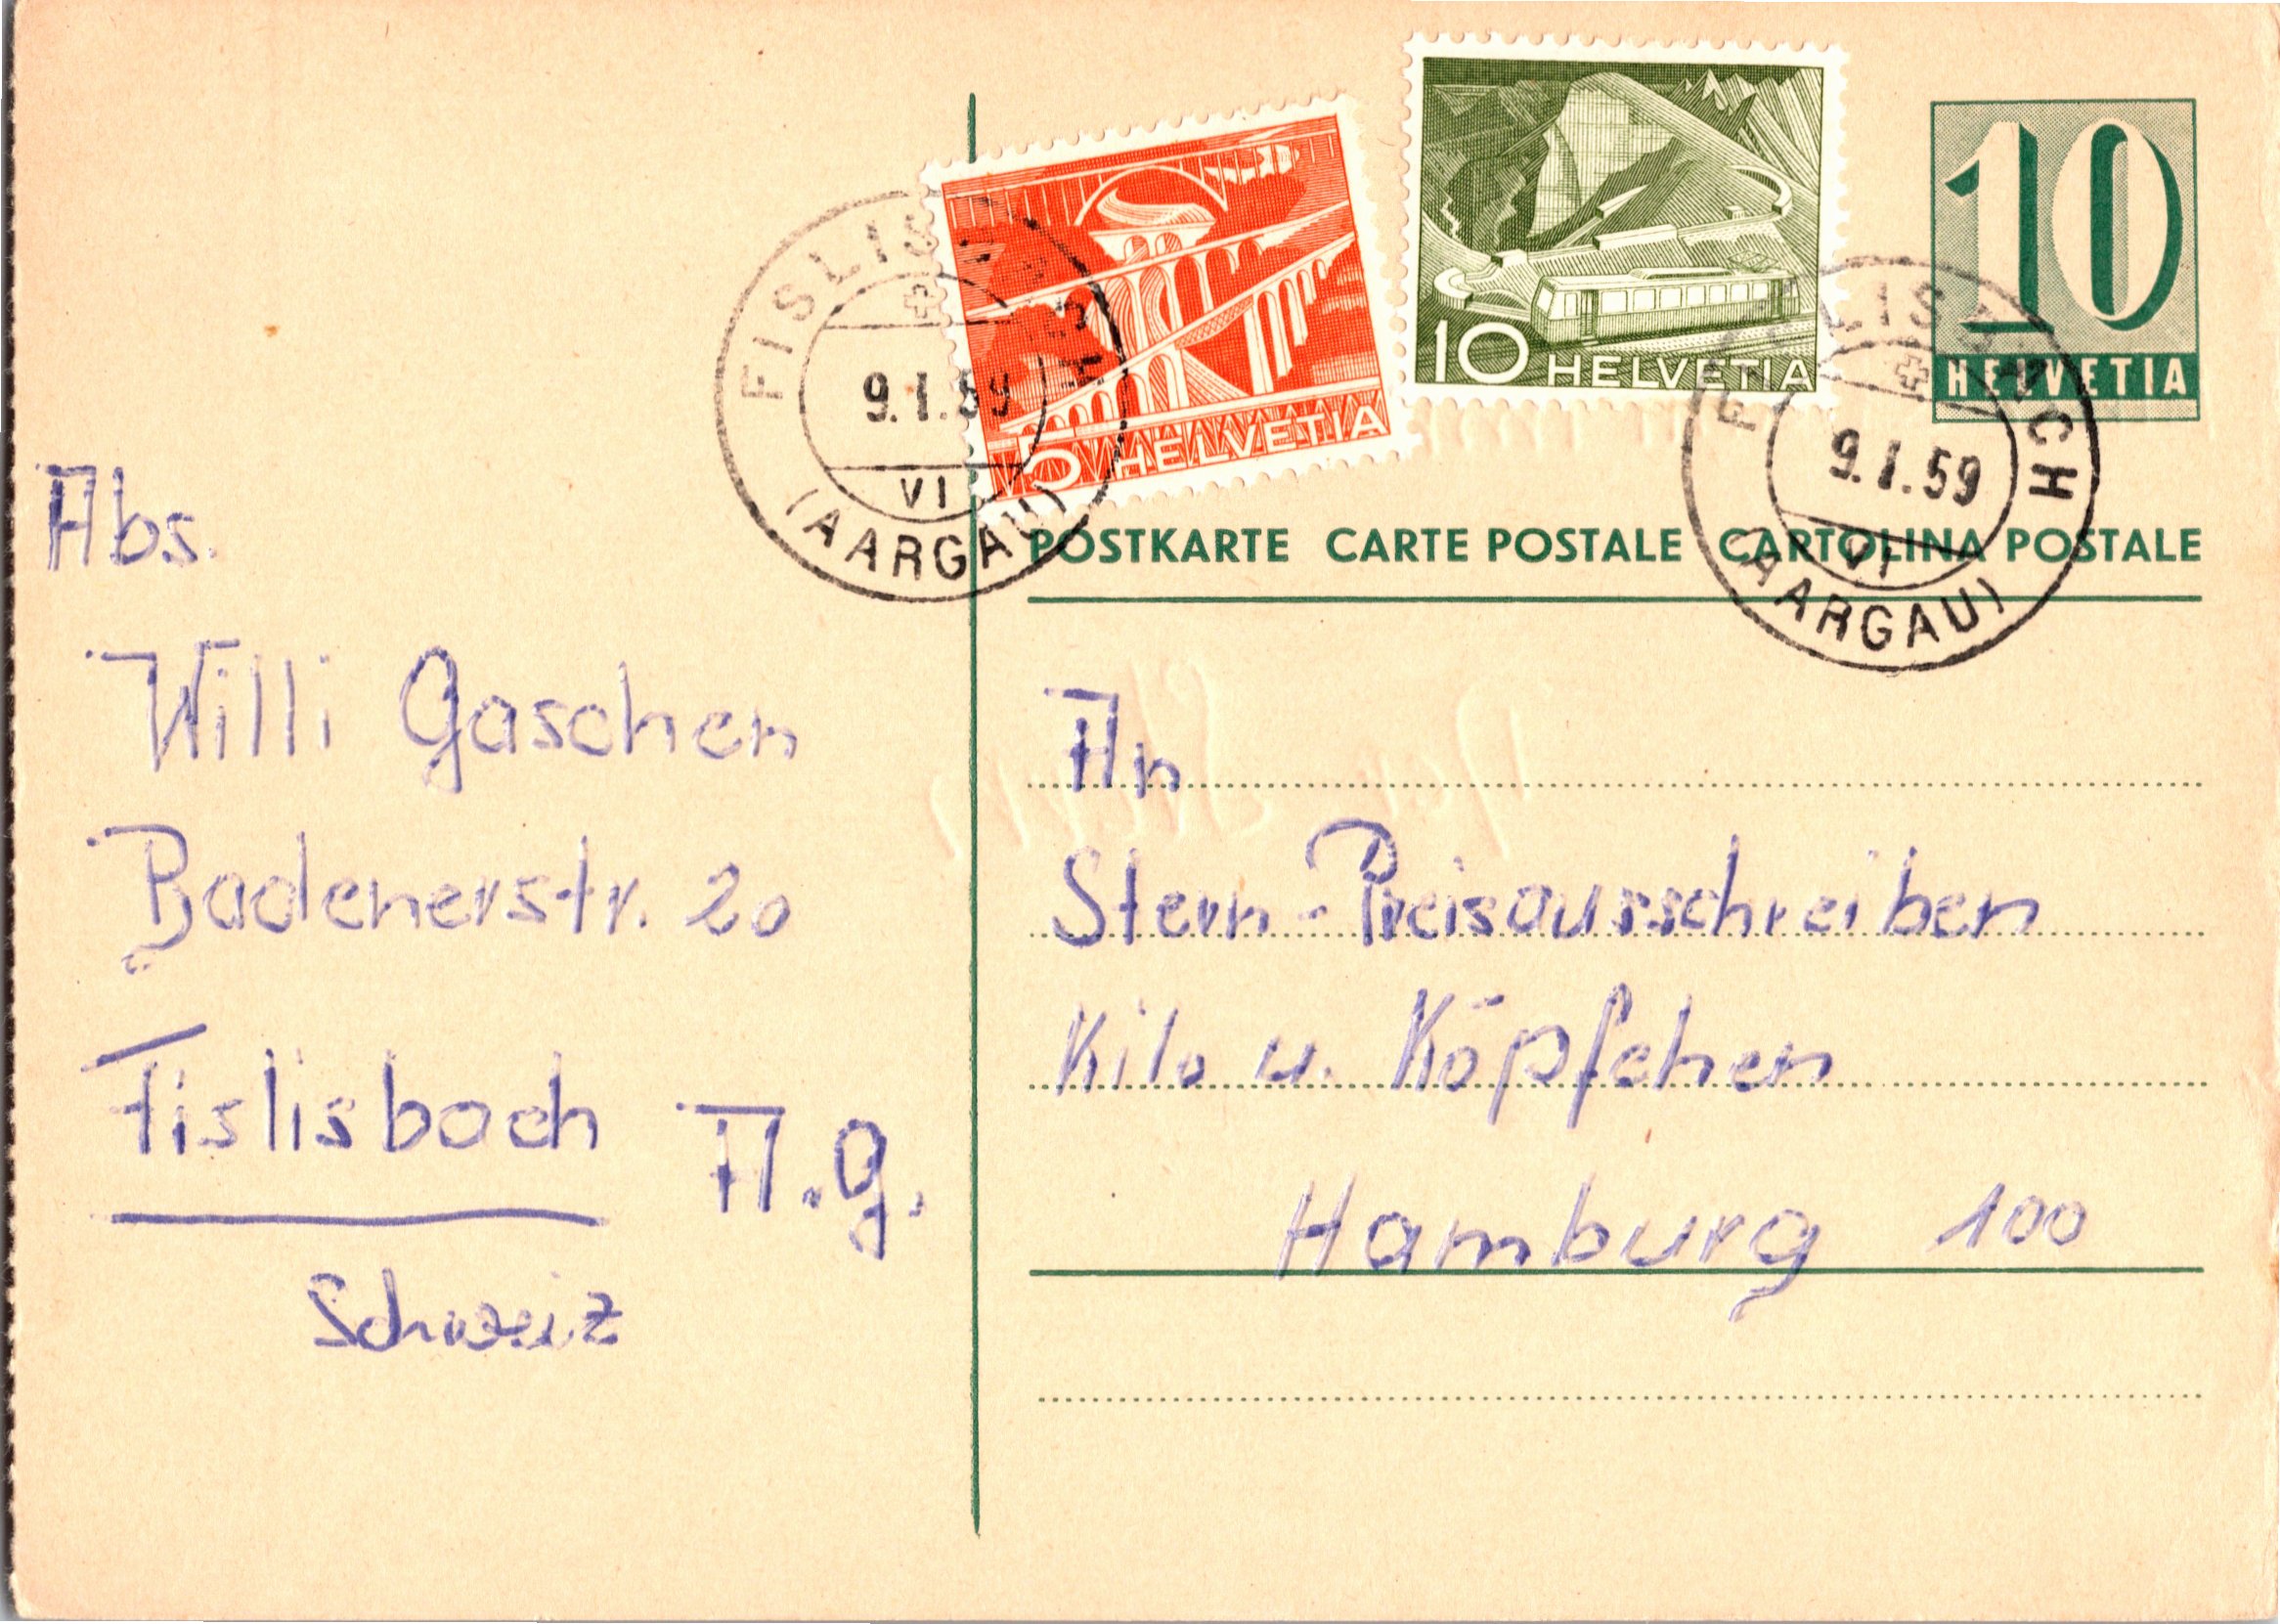 10
HELVETIA
5 HELVETIA
10 HELVETIA
FISLISBACH
9.1.59
VI
(AARGAU)
FISLISBACH
9.1.59
VI
(AARGAU)
POSTKARTE CARTE POSTALE CARTOLINA POSTALE
Abs.
Willi Gaschen
Badenerstr. 20
Fislisbach A.G.
Schweiz
An
Stern-Preisausschreiben
Kilo u. Köpfchen
Hamburg 100